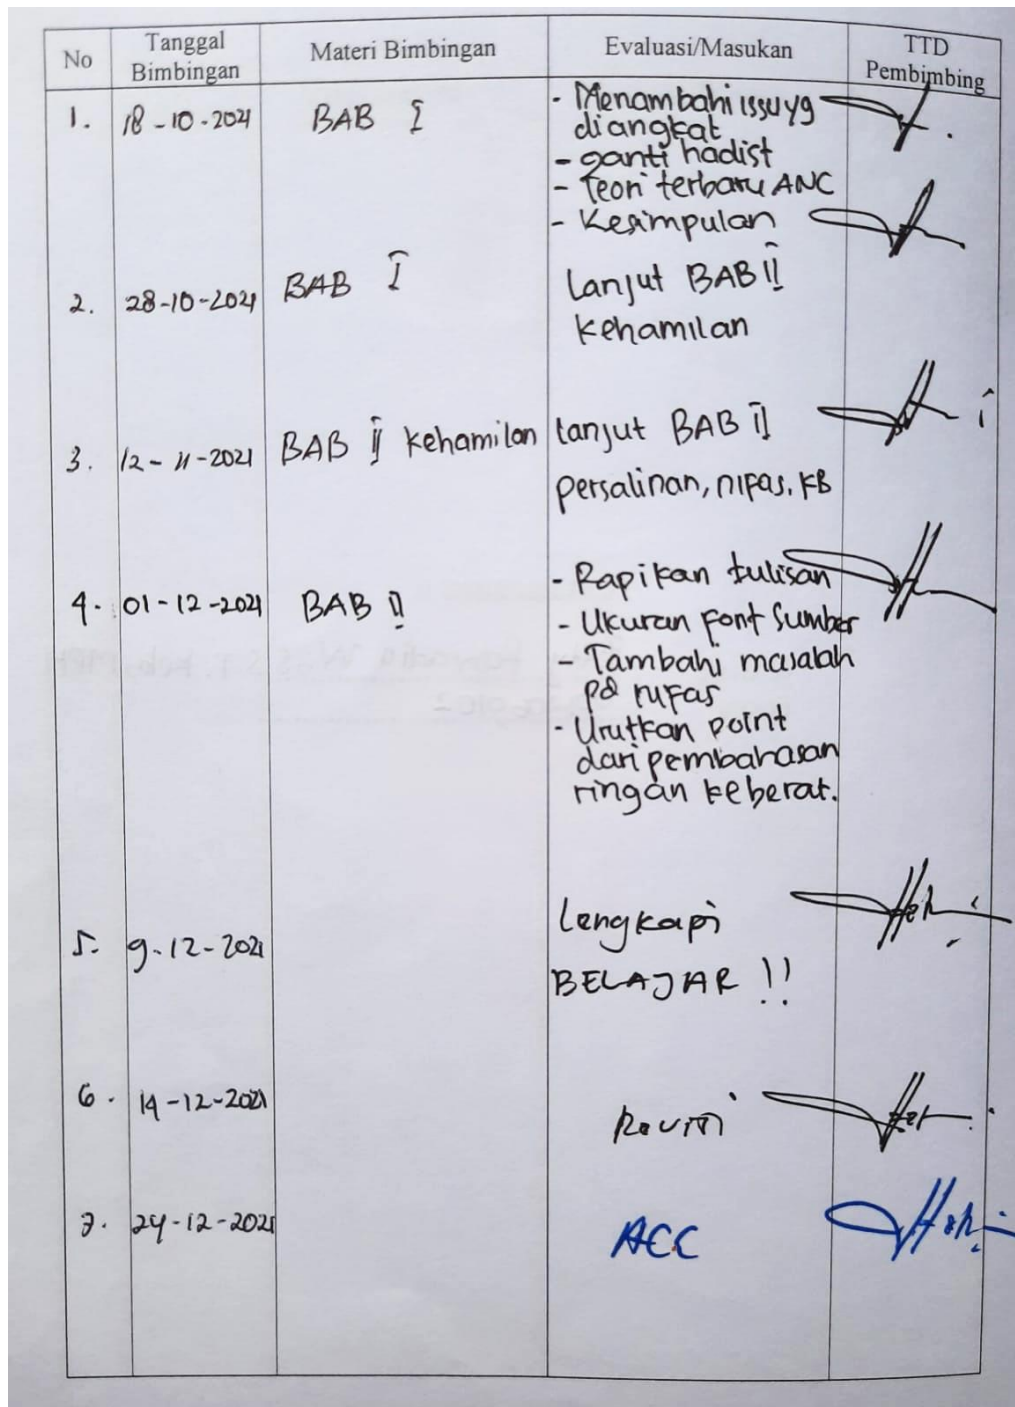 No
Tanggal
Bimbingan
Materi Bimbingan
Evaluasi/Masukan
TTD
Pembimbing
1.
18-10-2021
BAB I
- Menambahi issu yg
diangkat
- ganti hadist
- Teori terbaru ANC
- Kesimpulan
2.
28-10-2021
BAB I
Lanjut BAB II
kehamilan
3.
12-11-2021
BAB II kehamilan
lanjut BAB II
persalinan, nifas, KB
4.
01-12-2021
BAB II
- Rapikan tulisan
- Ukuran font Sumber
- Tambahi masalah
pd nifas
- Urutkan point
dari pembahasan
ringan keberat.
5.
9-12-2021
Lengkapi
BELAJAR !!
6.
14-12-2021
Revisi
7.
24-12-2021
ACC